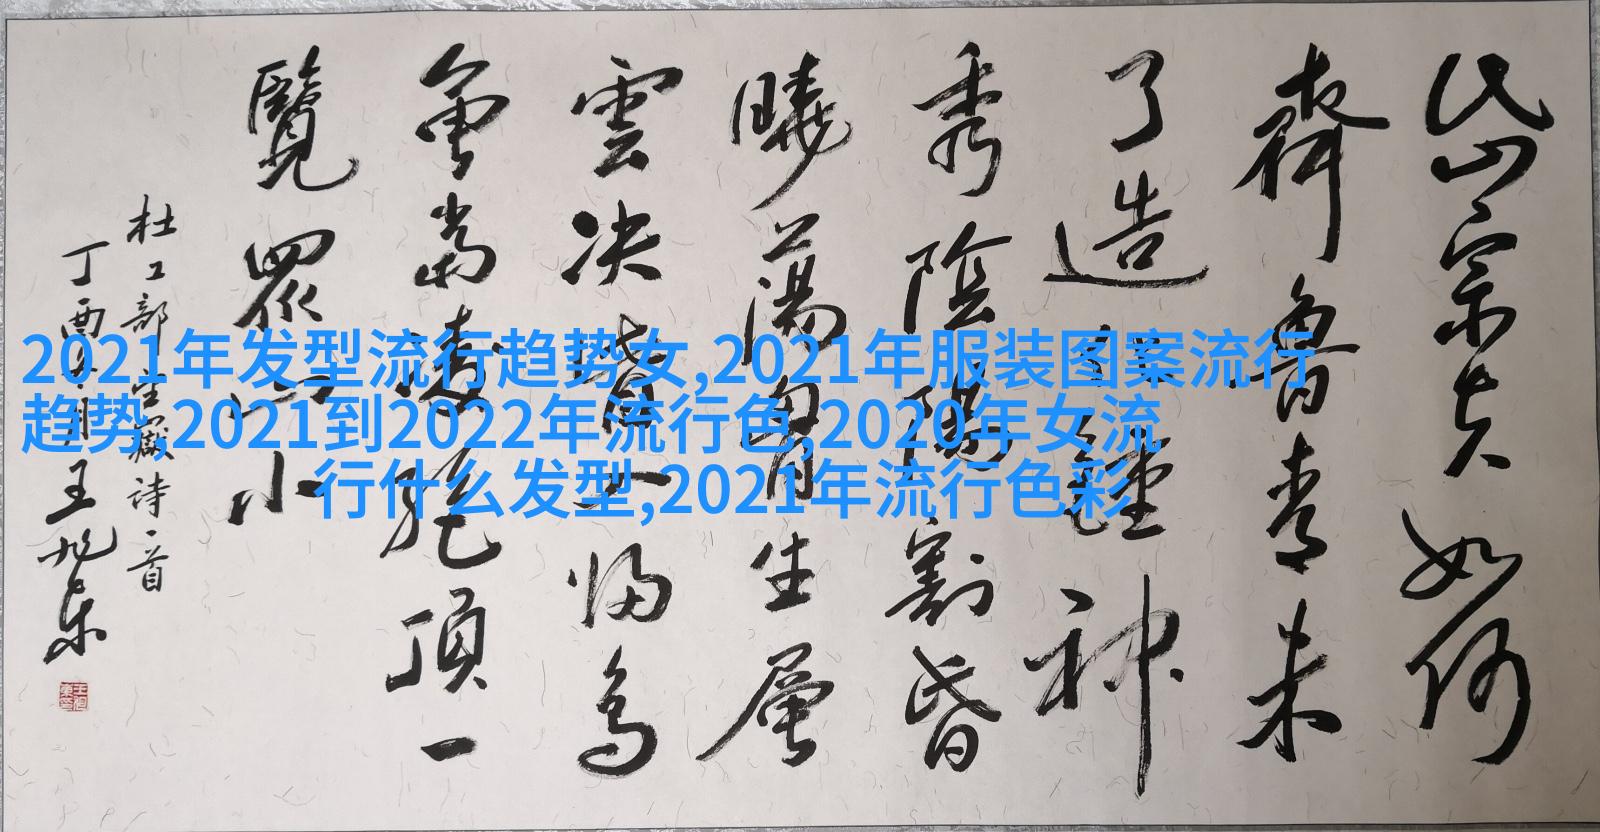 岱宗夫如何
齊魯青未
了造鍾神
秀陰陽割昏
曉蕩胸生層
雲决眥入歸鳥
會當凌絕頂一
覽眾山小
杜工部望嶽詩一首
丁酉月王旭东
2021年发型流行趋势女,2021年服装图案流行
趋势,2021到2022年流行色,2020年女流
行什么发型,2021年流行色彩